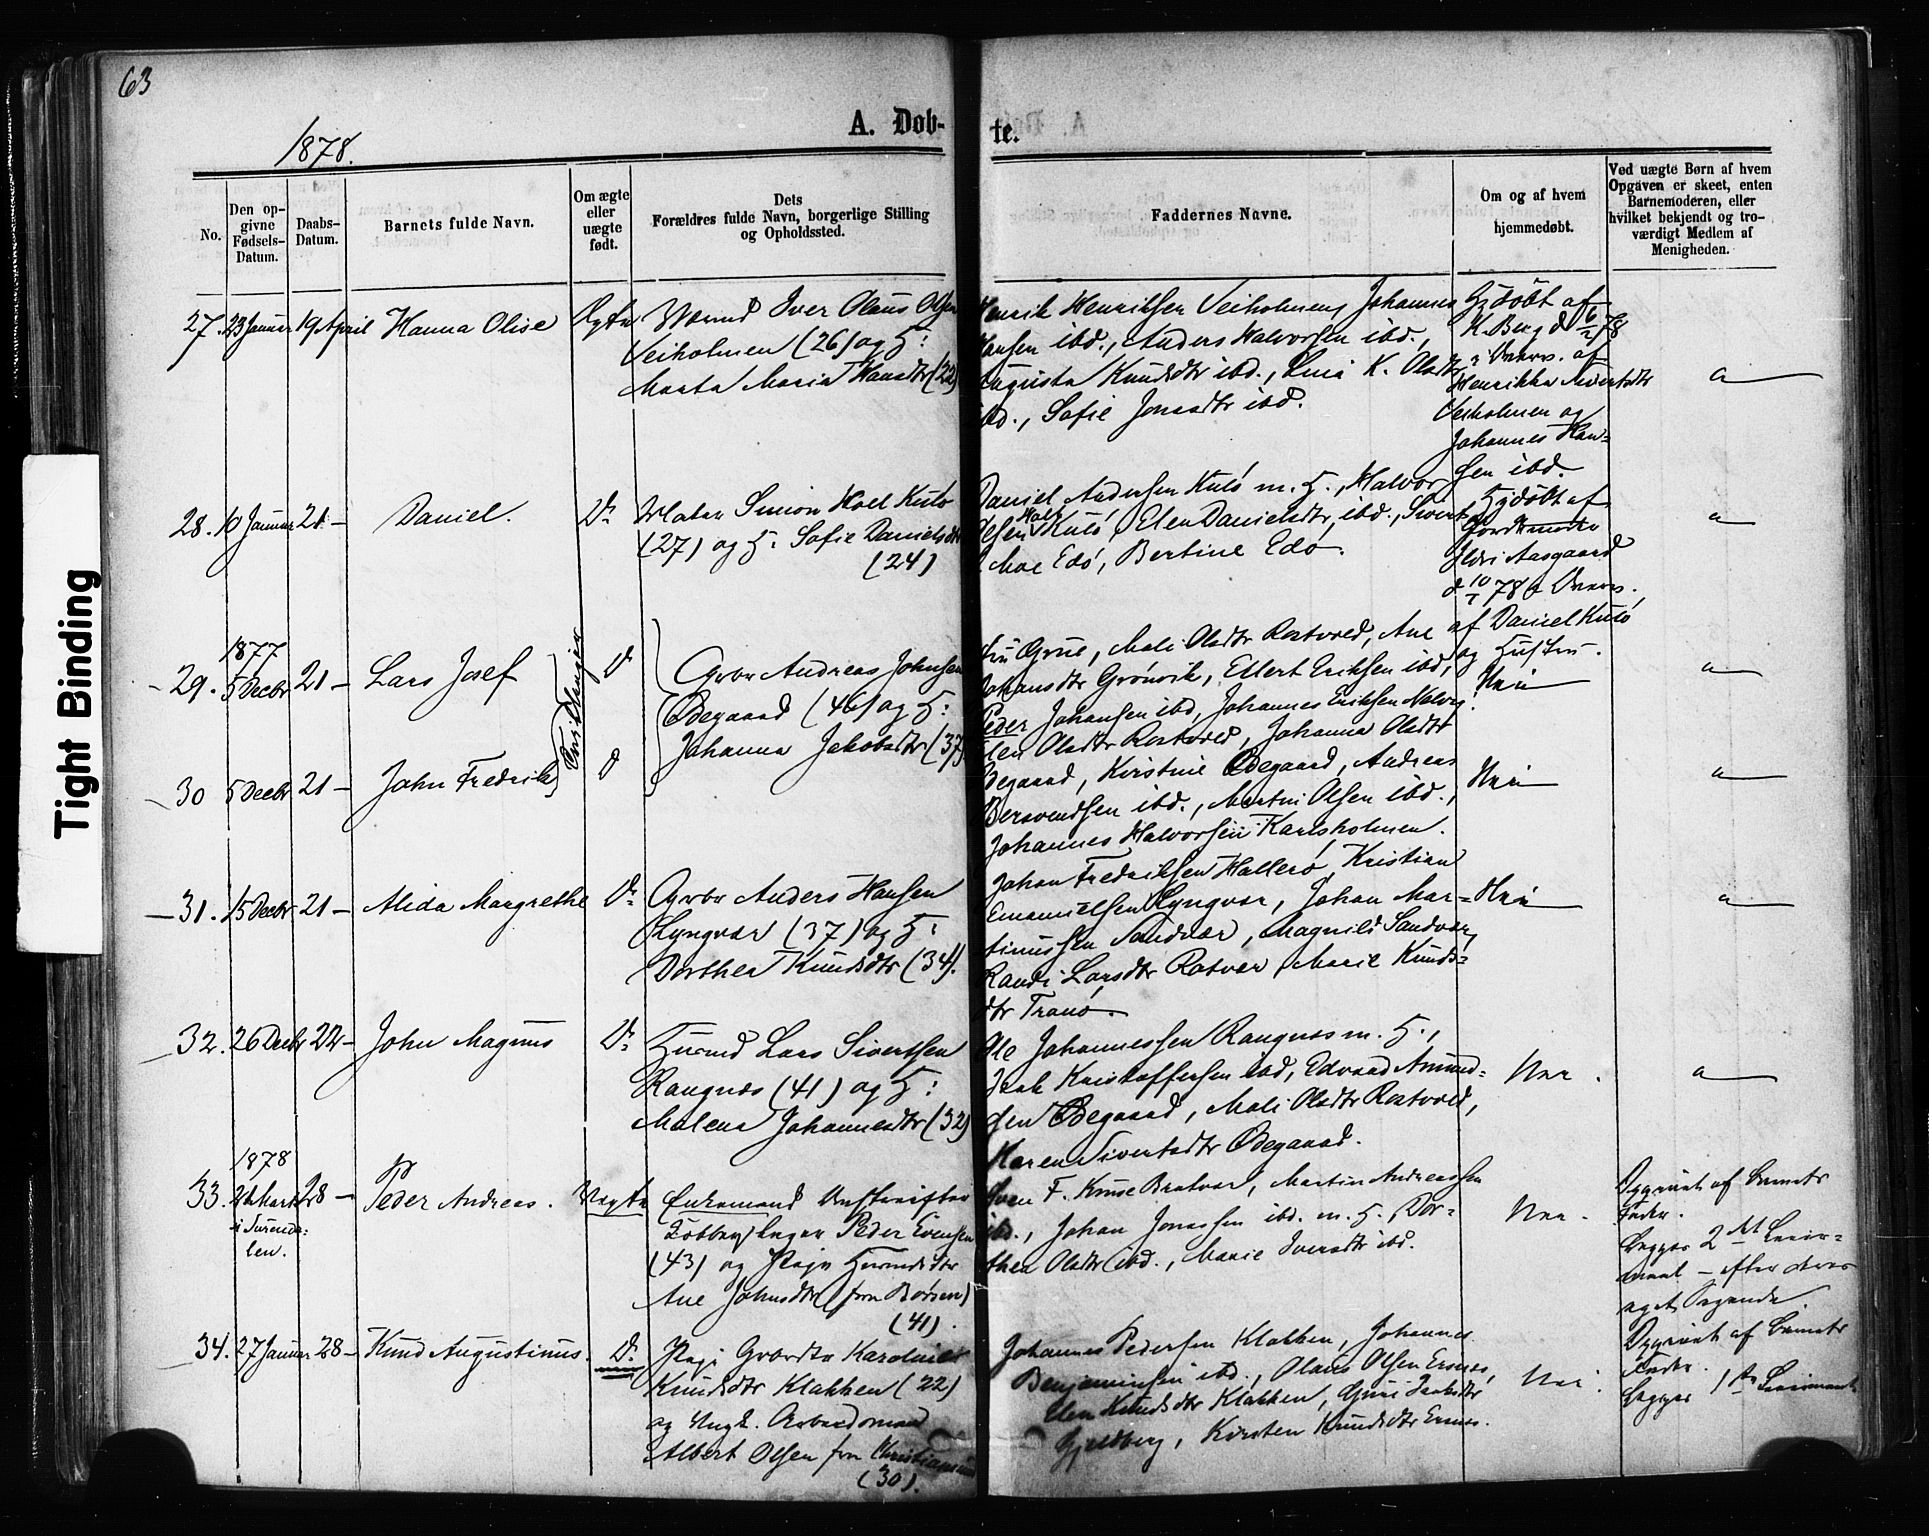 63
1878.
A. Døb-
te.
No.
Den op-
givne
Fødsels-
Datum.
Daabs-
Datum.
Barnets fulde Navn.
Om ægte
eller
uægte
født.
Dets
Forældres fulde Navn, borgerlige Stilling
og Opholdssted.
Faddernes Navne.
Om og af hvem
hjemmedøbt.
Ved uægte Børn af hvem
Opgaven er skeet, enten
Barnemoderen, eller
hvilket bekjendt og tro-
værdigt Medlem af
Menigheden.
27. 23 Januar 19 April Hanna Olise Ægte Iver Olaus Olsen
Veiholmen (26) og H:
Marta Maria Hansdtr (22)
Henrik Henriksen Veiholmen, Johannes
Hansen ibd., Anders Halvorsen ibd.,
Augusta Knudsdtr ibd., Lina K. Olsdtr
ibd., Sofie Jonsdtr ibd.
Hjdøbt af
K. Berg d 6/2 78
af
Henrikke Sivertsdtr
Veiholmen og
Johannes Han-
sen ibd.
28. 10 Januar 21 – Daniel. Do Simon Holl Kulø
(27) og H. Sofie Danielsdtr
(24)
Daniel Andersen Kulø m. H., Halvor
Olsen Holl Kulø, Elen Danielsdtr ibd., Sivert
Moe Edø, Bertine Edø.
Hjdøbt af
Jordemoder
Aasgaard
d 10/1 78
af Daniel Kulø
og Hustru.
1877
29. 5 Decbr 21 – Lars Josef
Tvillinger
D Gbr Andreas Johnsen
Ødegaard (46) og H:
Johanna Jakobsdtr (37)
Grue, Mali Olsdtr Rostvold, Ane
Johansdtr Grønvik, Ellert Eriksen ibd,
Peder Johansen ibd, Johannes Eriksen
Nei
30 5 Decbr 21 – John Fredrik D
Elen Olsdtr Rostvold, Johanna Olsdtr
Ødegaard, Kristine Ødegaard, Andreas
ibd., Martin Olsen ibd.,
Johannes Halvorsen Karlsholmen.
Nei
31. 15 Decbr 21 – Alida Margrethe Do Gbr Anders Hansen
Lyngvær (37) og H:
Dorthea Knudsdtr (34).
Johan Fredriksen Hallerø, Kristian
Emanuelsen Lyngvær, Johan Mar-
tinussen Sandvær, Magnild Sandvær,
Randi Larsdtr Rotvær, Marie Knuds-
dtr Tranø.
Nei
32. 26 Decbr 22 – John Magnus Do Husmd Lars Sivertsen
Rangnes (41) og H:
Malena Johannesdtr (32)
Ole Johannessen Rangnes m. H.,
Isak Kristoffersen ibd, Edvard Amund-
sen Ødegaard, Mali Olsdtr Rostvold,
Karen Sivertsdtr Ødegaard.
Nei.
1878
33. 24 Marts 28 – Peder Andreas. Uægte Enkemand
i Surenda-
len.
Peder Evensen
(43) og Pige
Ane Johnsdtr (fra Børsen)
(41).
Sven F. Knuse Bratvær, Martin Andreassen
ibd., Johan Jonassen ibd. m. H. Dor-
thea Olsdtr ibd., Marie Iversdtr ibd.
Nei.
Opgivet af Barnets
Fader.
Begges 2det Leier-
maal – efter
eget Sigende.
34. 27 Januar 28 – Knud Augustinus. Do Pige Karoline
Knudsdtr Klakken (22)
og Ungk. Arbeidsmand
Albert Olsen fra Christiansund
(30).
Johannes Pedersen Klakken, Johannes
Benjaminsen ibd., Olaus Olsen Ernes,
Elen Knudsdtr Klakken, Guri Isaksdtr
Gjeldberg, Kirsten Knudsdtr Ernes.
Nei.
Opgivet af Barnets
Fader.
Begges 1ste Leiermaal
Tight Binding